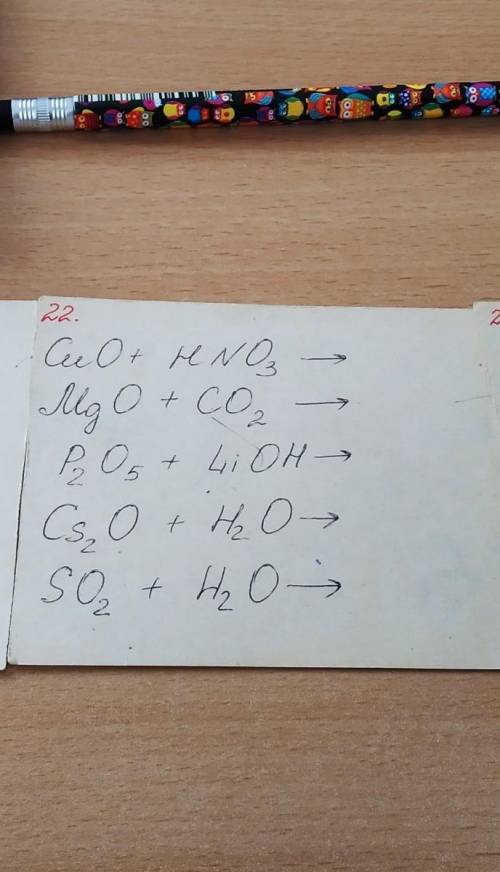 22.
CuO + HNO₃ →
MgO + CO₂ →
P₂O₅ + LiOH →
Cs₂O + H₂O →
SO₂ + H₂O →